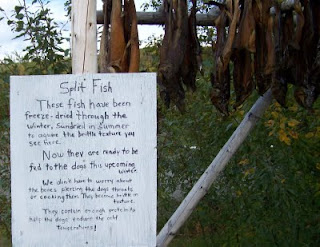 Split Fish
These fish have been
freeze-dried through the
winter, Sundried in summer
to acquire the brittle texture you
see here.
Now they are ready to be
fed to the dogs this upcoming
winter.
We don't have to worry about
the bones piercing the dogs throats
or choking them. They become brittle in
texture.
They contain enough protein to
help the dogs endure the cold
temperatures!